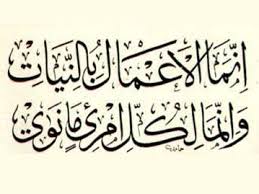 إِنَّمَا الأَعْمَالُ بِالنِّيَّاتِ
وَإِنَّمَا لِكُلِّ امْرِئٍ مَا نَوَىٰ